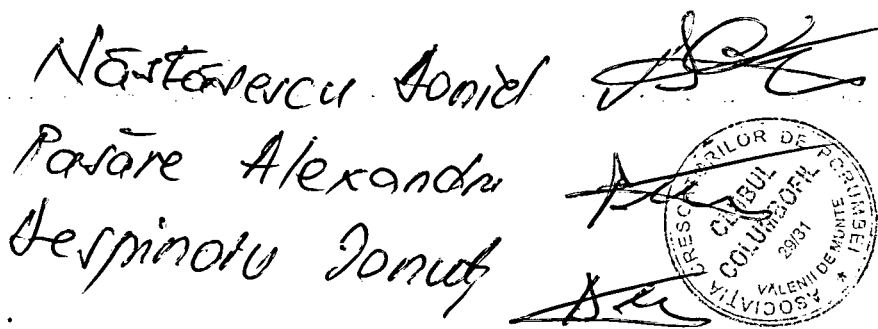 Năstăsescu Daniel
Pasăre Alexandru
Despinoiu Ionuț
ASOCIAȚIA CRESCĂTORILOR DE PORUMBEI
CLUBUL
COLUMBOFIL
29/31
VĂLENII DE MUNTE